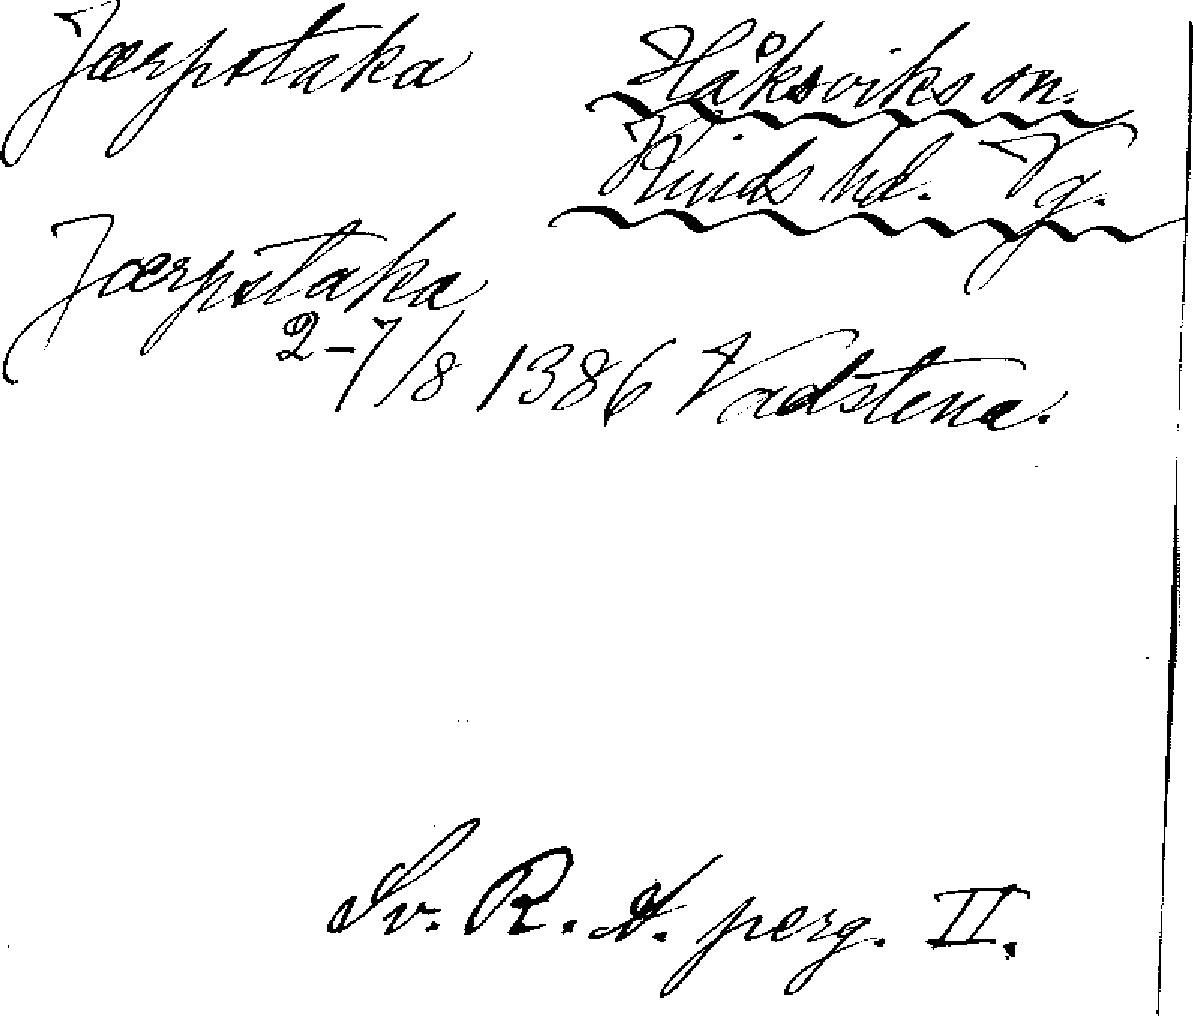 Jærpstaka
Håksviks sn.
Kinds hd. Vg.
Jærpstaka
2-7/8 1386 Vadstena.
Sv. R. A. perg. II.